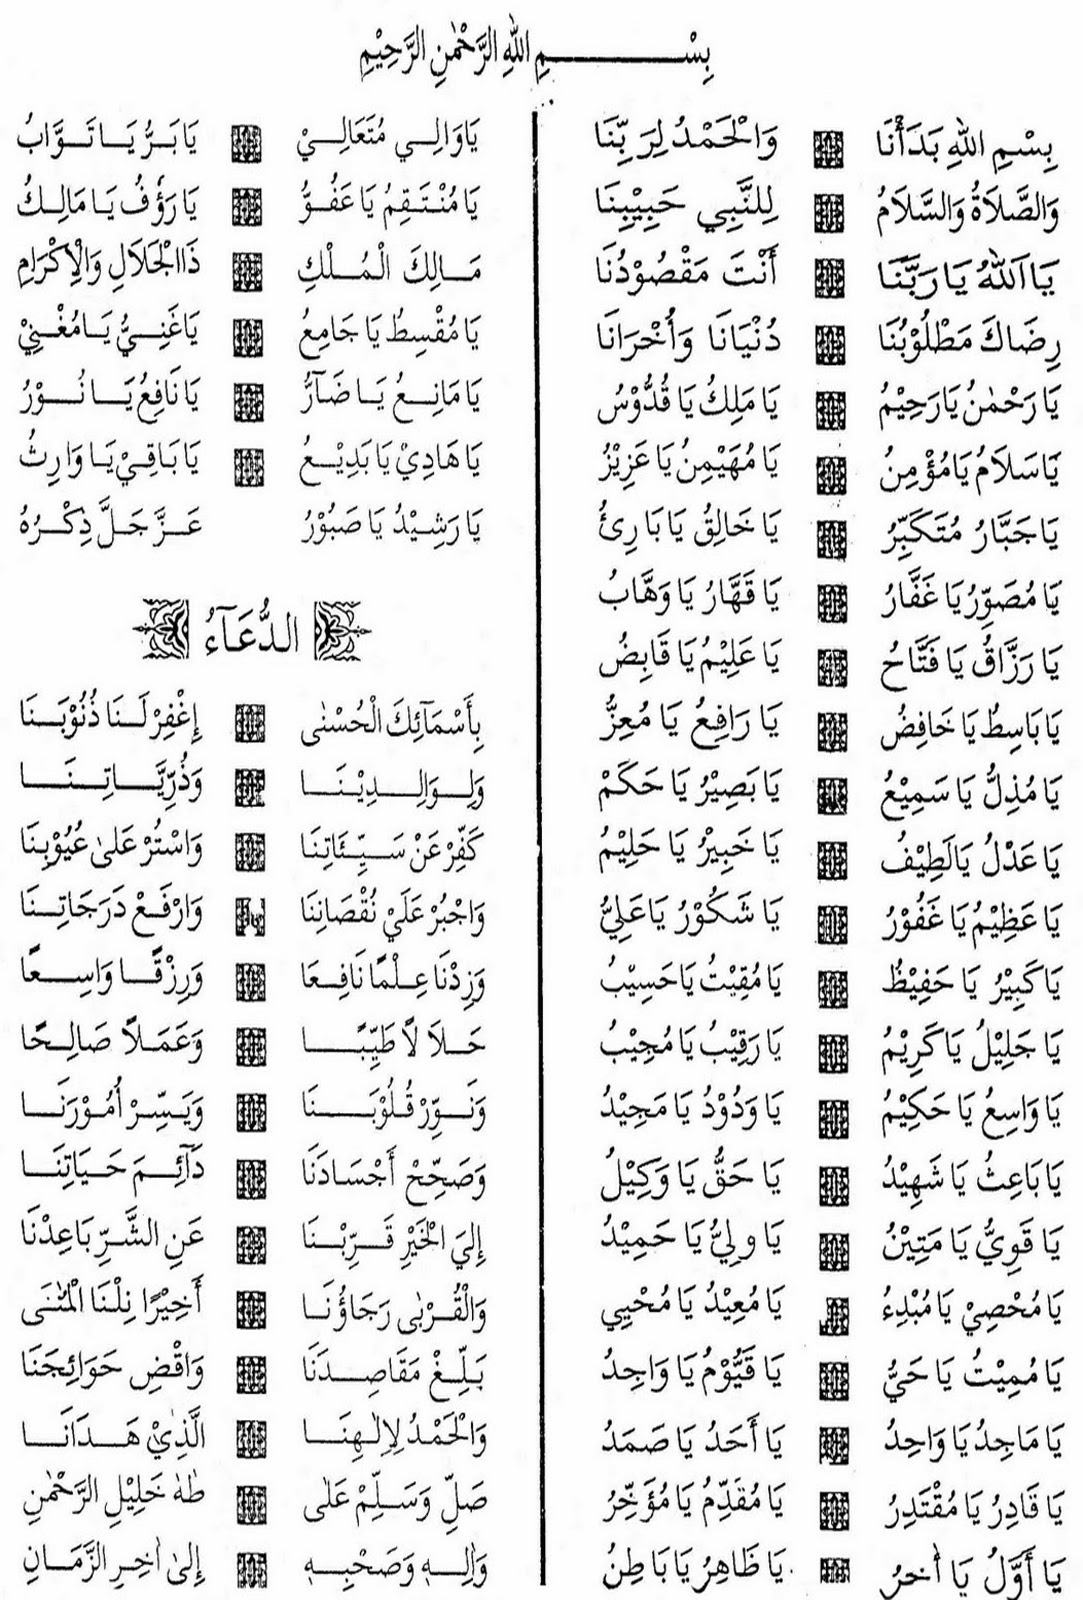 بِسْمِ اللّٰهِ الرَّحْمٰنِ الرَّحِيْمِ
بِسْمِ اللّٰهِ بَدَأْنَا وَالْحَمْدُ لِرَبِّنَا
وَالصَّلَاةُ وَالسَّلَامُ لِلنَّبِي حَبِيْبِنَا
يَا اَللّٰهُ يَا رَبَّنَا أَنْتَ مَقْصُوْدُنَا
رِضَاكَ مَطْلُوْبُنَا دُنْيَانَا وَأُخْرَانَا
يَا رَحْمٰنُ يَا رَحِيْمُ يَا مَلِكُ يَا قُدُّوْسُ
يَا سَلَامُ يَا مُؤْمِنُ يَا مُهَيْمِنُ يَا عَزِيْزُ
يَا جَبَّارُ مُتَكَبِّرُ يَا خَالِقُ يَا بَارِئُ
يَا مُصَوِّرُ يَا غَفَّارُ يَا قَهَّارُ يَا وَهَّابُ
يَا رَزَّاقُ يَا فَتَّاحُ يَا عَلِيْمُ يَا قَابِضُ
يَا بَاسِطُ يَا خَافِضُ يَا رَافِعُ يَا مُعِزُّ
يَا مُذِلُّ يَا سَمِيْعُ يَا بَصِيْرُ يَا حَكَمْ
يَا عَدْلُ يَا لَطِيْفُ يَا خَبِيْرُ يَا حَلِيْمُ
يَا عَظِيْمُ يَا غَفُوْرُ يَا شَكُوْرُ يَا عَلِيُّ
يَا كَبِيْرُ يَا حَفِيْظُ يَا مُقِيْتُ يَا حَسِيْبُ
يَا جَلِيْلُ يَا كَرِيْمُ يَا رَقِيْبُ يَا مُجِيْبُ
يَا وَاسِعُ يَا حَكِيْمُ يَا وَدُوْدُ يَا مَجِيْدُ
يَا بَاعِثُ يَا شَهِيْدُ يَا حَقُّ يَا وَكِيْلُ
يَا قَوِيُّ يَا مَتِيْنُ يَا وَلِيُّ يَا حَمِيْدُ
يَا مُحْصِيْ يَا مُبْدِءُ يَا مُعِيْدُ يَا مُحْيِي
يَا مُمِيْتُ يَا حَيُّ يَا قَيُّوْمُ يَا وَاجِدُ
يَا مَاجِدُ يَا وَاحِدُ يَا أَحَدُ يَا صَمَدُ
يَا قَادِرُ يَا مُقْتَدِرُ يَا مُقَدِّمُ يَا مُؤَخِّرُ
يَا أَوَّلُ يَا أٰخِرُ يَا ظَاهِرُ يَا بَاطِنُ
يَا وَالِي مُتَعَالِيْ يَا بَرُّ يَا تَوَّابُ
يَا مُنْتَقِمُ يَا عَفُوُّ يَا رَؤُفُ يَا مَالِكُ
مَالِكَ الْمُلْكِ ذَا الْجَلَالِ وَالْإِكْرَامِ
يَا مُقْسِطُ يَا جَامِعُ يَا غَنِيُّ يَا مُغْنِيْ
يَا مَانِعُ يَا ضَآرُّ يَا نَافِعُ يَا نُوْرُ
يَا هَادِيْ يَا بَدِيْعُ يَا بَاقِيْ يَا وَارِثُ
يَا رَشِيْدُ يَا صَبُوْرُ عَزَّ جَلَّ ذِكْرُهُ
الدُّعَآءُ
بِأَسْمَآئِكَ الْحُسْنٰى إِغْفِرْ لَنَا ذُنُوْبَنَا
وَلِوَالِدِيْنَا وَذُرِّيَّاتِنَا
كَفِّرْ عَنْ سَيِّئَاتِنَا وَاسْتُرْ عَلٰى عُيُوْبِنَا
وَاجْبُرْ عَلَيْ نُقْصَانِنَا وَارْفَعْ دَرَجَاتِنَا
وَزِدْنَا عِلْمًا نَافِعَا وَرِزْقًا وَاسِعًا
حَلَالًا طَيِّبًا وَعَمَلًا صَالِحًا
وَنَوِّرْ قُلُوْبَنَا وَيَسِّرْ أُمُوْرَنَا
وَصَحِّحْ أَجْسَادَنَا دَآئِمَ حَيَاتِنَا
إِلَيَ الْخَيْرِ قَرِّبْنَا عَنِ الشَّرِّ بَاعِدْنَا
وَالْقُرْبٰى رَجَاؤُنَا أَخِيْرًا نِلْنَا الْمُنٰى
بَلِّغْ مَقَاصِدَنَا وَاقْضِ حَوَائِجَنَا
وَالْحَمْدُ لِإِلٰهِنَا الَّذِيْ هَدَانَا
صَلِّ وَسَلِّمْ عَلٰى طٰهٰ خَلِيْلِ الرَّحْمٰنِ
وَاٰلِهِ وَصَحْبِهِ إِلىٰ اٰخِرِ الزَّمَانِ